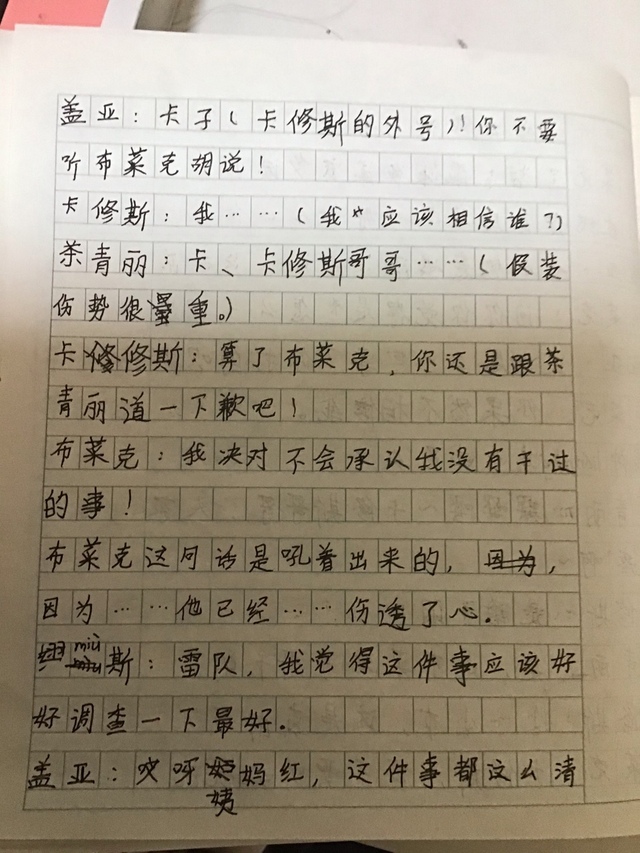 盖亚：卡子(卡修斯的外号)！你不要
听布莱克胡说！
卡修斯：我……(我应该相信谁？)
茶青丽：卡、卡修斯哥哥……(假装
伤势很重。)
卡修斯：算了布莱克，你还是跟茶
青丽道一下歉吧！
布莱克：我决对不会承认我没有干过
的事！
布莱克这句话是吼着出来的，因为，
因为……他已经……伤透了心.
缪miù斯：雷队，我觉得这件事应该好
好调查一下最好.
盖亚：哎呀姨妈红，这件事都这么清